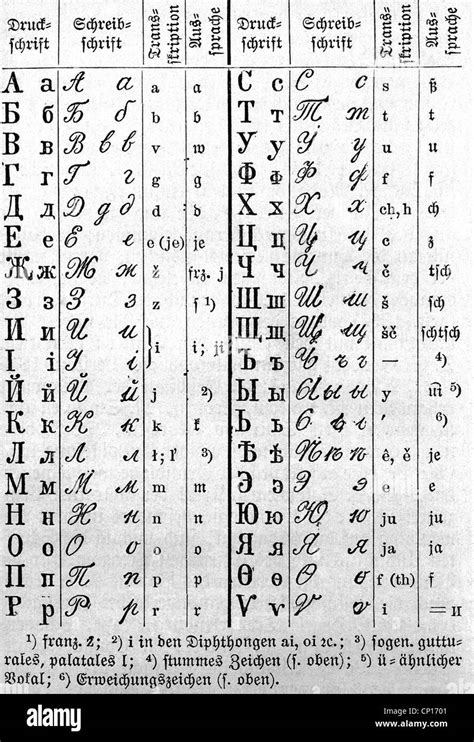 Druck- Schreib- Trans- Aus- Druck- Schreib- Trans- Aus-
schrift schrift skription sprache schrift schrift skription sprache
А а А а a a С с С с s ß
Б б Б б b b Т т Т т t t
В в В в в v w У у У у u u
Г г Г г g g Ф ф Ф ф f f
Д д Д д д d d Х х Х х ch, h ch
Е е Е е e (je) je Ц ц Ц ц c z
Ж ж Ж ж ž frz. j Ч ч Ч ч č tsch
З з З з z s ¹) Ш ш Ш ш š sch
И и И и i i; ji Щ щ Щ щ šč schtsch
І і І і Ъ ъ Ъ ъ ъ — ⁴)
Й й Й й j ²) Ы ы Ы ы ы y ⁵)
К к К к k k Ь ь Ь ь ⁶)
Л л Л л ł; l' ³) Ѣ ѣ Ѣ ѣ ê, ě je
М м М м m m Э э Э э e e
Н н Н н n n Ю ю Ю ю ju ju
О о О о o o Я я Я я ja ja
П п П п p p Ѳ ѳ Ѳ ѳ f (th) f
Р р Р р r r Ѵ ѵ Ѵ ѵ i = и
¹) franz. z; ²) i in den Diphthongen ai, oi ꝛc.; ³) sogen. guttu-
rales, palatales l; ⁴) stummes Zeichen (s. oben); ⁵) ü-ähnlicher
Vokal; ⁶) Erweichungszeichen (s. oben).
alamy
alamy
Image ID: CP1701
www.alamy.com